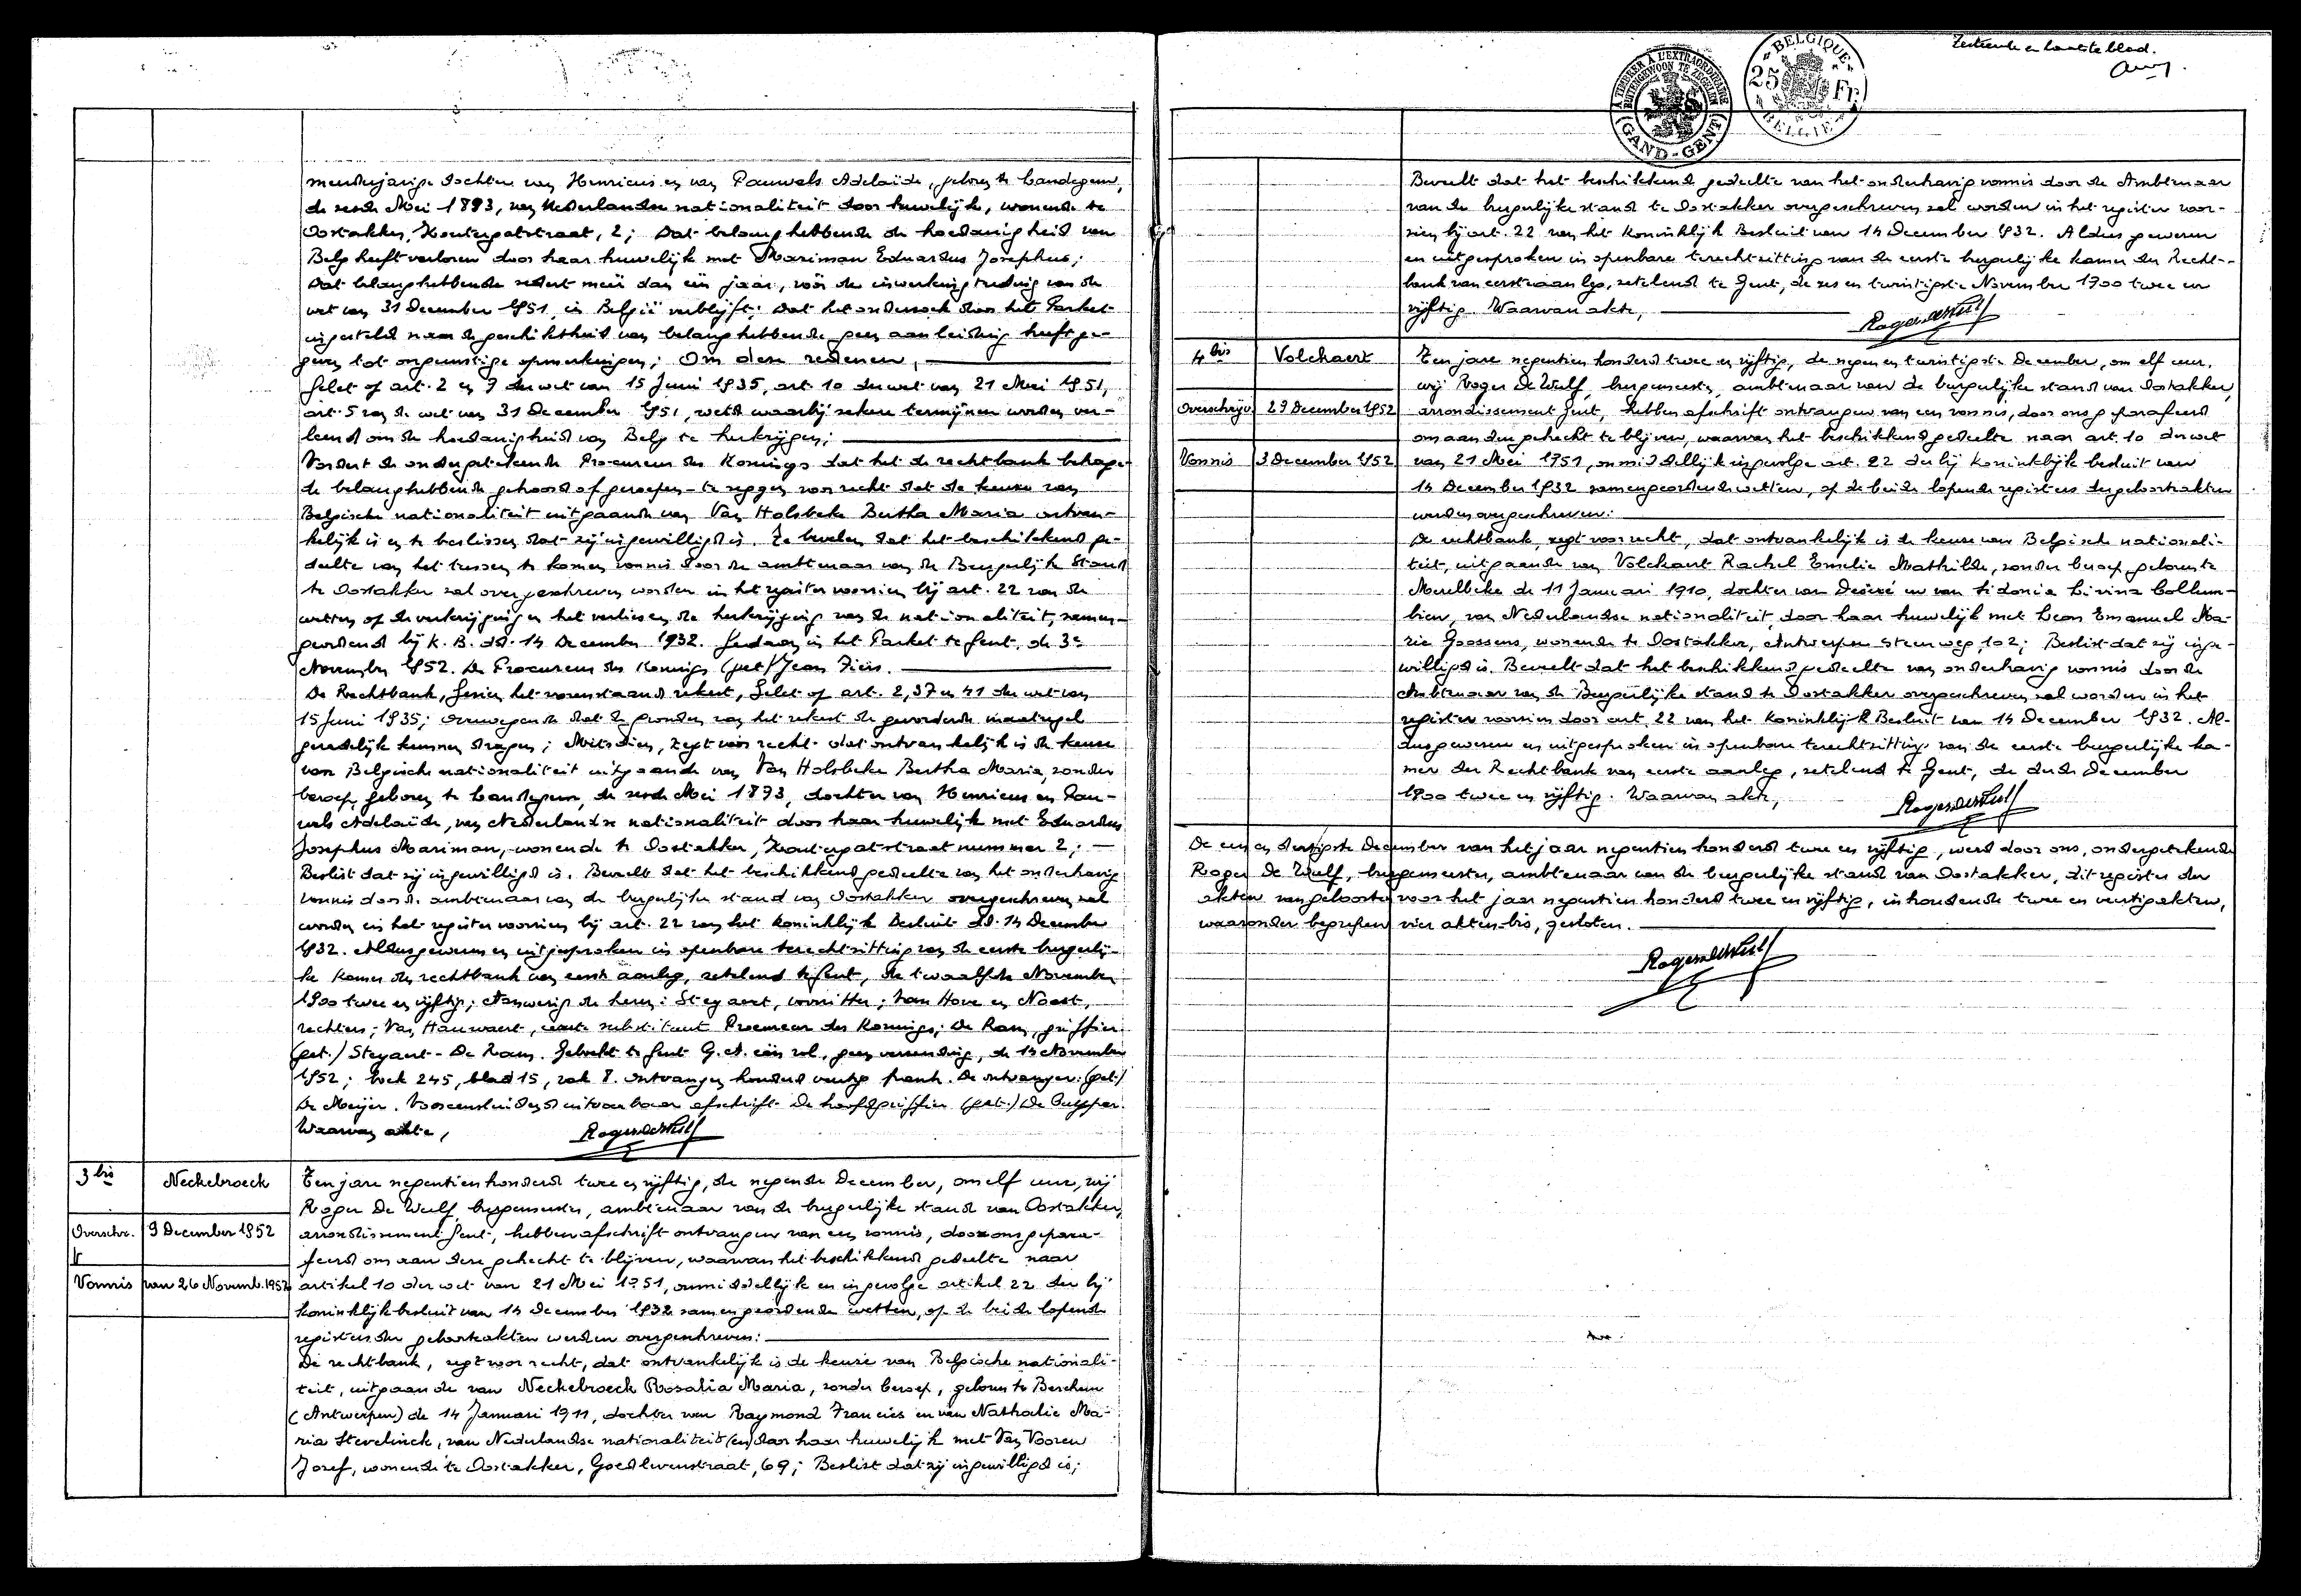 meerderjarige dochter van Henricus en van Pauwels Adelaïde, geboren te Landegem,
de zesde Mei 1893, van Nederlandse nationaliteit door huwelijk, wonende te
Oostakker, Houtergatstraat, 2; Dat belanghebbende de hoedanigheid van
Belg heeft verloren door haar huwelijk met Mariman Eduardus Josephus;
Dat belanghebbende sedert meer dan één jaar, vóór de inwerkingtreding van de
wet van 31 December 1951, in België verblijft; Dat het onderzoek door het Parket
ingesteld naar de geschiktheid van belanghebbende geen aanleiding heeft ge-
geven tot ongunstige opmerkingen; Om deze redenen,
Gelet op art. 2 en 7 der wet van 15 Juni 1935, art. 10 der wet van 21 Mei 1951,
art. 5 van de wet van 31 December 1951, wet waarbij zekere termijnen worden ver-
leend om de hoedanigheid van Belg te herkrijgen;
Vordert de ondergetekende Procureur des Konings dat het de rechtbank behage
de belanghebbende gehoord of geroepen - te zeggen voor recht dat de keuze van
Belgische nationaliteit uitgaande van Van Holsbeke Bertha Maria ontvan-
kelijk is en te beslissen dat zij ingewilligd is. Te bevelen dat het beschikkend ge-
deelte van het tussen te komen vonnis door de ambtenaar van de Burgerlijke Stand
te Oostakker zal overgeschreven worden in het register voorzien bij art. 22 van de
wetten op de verkrijging en het verliezen de herkrijging van de nationaliteit, samen-
geordend bij K.B. dd. 14 December 1932. Gedaan in het Parket te Gent, de 3e
November 1952. De Procureur des Konings (get) Jean
De Rechtbank, Gezien het vorenstaand rekest, Gelet op art. 2, 37 en 41 der wet van
15 Juni 1935; Overwegende dat de gronden van het rekest de gevorderde maatregel
geredelijk kunnen dragen; Mitsdien, zegt voor recht dat ontvankelijk is de keuze
van Belgische nationaliteit uitgaande van Van Holsbeke Bertha Maria, zonder
beroep, geboren te Landegem, de zesde Mei 1893, dochter van Henricus en Pau-
wels Adelaïde, van Nederlandse nationaliteit door haar huwelijk met Eduardus
Josephus Mariman, wonende te Oostakker, Houtergatstraat nummer 2;
Beslist dat zij ingewilligd is. Beveelt dat het beschikkend gedeelte van het onderhavig
vonnis door de ambtenaar van de burgerlijke stand van Oostakker overgeschreven zal
worden in het register voorzien bij art. 22 van het koninklijk Besluit dd. 14 December
1932. Aldus gewezen en uitgesproken in openbare terechtzitting van de eerste burgerlij-
ke kamer der rechtbank van eerste aanleg, zetelend te Gent, de twaalfde November
1900 twee en vijftig; Aanwezig de heren: Steyaert, voorzitter; Van Hove en Noest,
rechters; Van Hauwaert, eerste substituut Procureur des Konings; De Raus, griffier
(get.) Steyaert - De Raus. Geboekt te Gent G.A. één rol, geen verzending, de 14 November
1952; boek 245, blad 15, vak 8. Ontvangen honderd veertig frank. De ontvanger: (get.)
De Meijer. Vooreensluidend uitvoerbaar afschrift De hoofdgriffier (get.) De Cuyper.
Waarvan akte, Roger De Wulf
3 bis Neckebroeck Ten jare negentien honderd twee en vijftig, de negende December, om elf uur, wij
Roger De Wulf, burgemeester, ambtenaar van de burgerlijke stand van Oostakker,
Overschr. 9 December 1952 arrondissement Gent, hebben afschrift ontvangen van een vonnis, door ons gepara-
feerd om aan deze gehecht te blijven, waarvan het beschikkend gedeelte naar
Vonnis van 26 Novemb. 1952 artikel 10 der wet van 21 Mei 1951, onmiddellijk en ingevolge artikel 22 der bij
koninklijk besluit van 14 December 1932 samengeordende wetten, op de beide lopende
registers der geboorteakten werden overgeschreven:
De rechtbank, zegt voor recht, dat ontvankelijk is de keuze van Belgische nationali-
teit, uitgaande van Neckebroeck Rosalia Maria, zonder beroep, geboren te Berchem
(Antwerpen) de 14 Januari 1911, dochter van Raymond Francies en van Nathalie Ma-
ria Stevelinck, van Nederlandse nationaliteit (en) door haar huwelijk met Van Vooren
Jozef, wonende te Oostakker, Goedlevenstraat, 69; Beslist dat zij ingewilligd is;
A TIMBRER A L'EXTRAORDINAIRE
BUITENGEWOON TE ZEGELEN
GAND-GENT
BELGIQUE
25 Fr.
BELGIE
laatste blad.
Beveelt dat het beschikkend gedeelte van het onderhavig vonnis door de Ambtenaar
van de burgerlijke stand te Oostakker overgeschreven zal worden in het register voor-
zien bij art. 22 van het Koninklijk Besluit van 14 December 1932. Aldus gewezen
en uitgesproken in openbare terechtzitting van de eerste burgerlijke kamer der Recht-
bank van eerste aanleg, zetelend te Gent, de zes en twintigste November 1900 twee en
vijftig. Waarvan akte, Roger De Wulf
4 bis Volckaert Ten jare negentien honderd twee en vijftig, de negen en twintigste December, om elf uur,
wij Roger De Wulf, burgemeester, ambtenaar van de burgerlijke stand van Oostakker,
Overschrijv 29 December 1952 arrondissement Gent, hebben afschrift ontvangen van een vonnis, door ons geparafeerd
om aan deze gehecht te blijven, waarvan het beschikkend gedeelte naar art. 10 der wet
Vonnis 3 December 1952 van 21 Mei 1951, onmiddellijk ingevolge art. 22 der bij koninklijk besluit van
14 December 1932 samengeordende wetten, op de beide lopende registers der geboorteakten
werden overgeschreven:
De rechtbank, zegt voor recht, dat ontvankelijk is de keuze van Belgische nationali-
teit, uitgaande van Volckaert Rachel Emelie Mathilde, zonder beroep, geboren te
Merelbeke de 11 Januari 1910, dochter van Desiré en van Sidonie Livina Collum-
bien, van Nederlandse nationaliteit, door haar huwelijk met Leon Emanuel Ma-
rie Goossens, wonende te Oostakker, Antwerpen Steenweg, 102; Beslist dat zij inge-
willigd is. Beveelt dat het beschikkend gedeelte van onderhavig vonnis door de
Ambtenaar van de Burgerlijke stand te Oostakker overgeschreven zal worden in het
register voorzien door art. 22 van het Koninklijk Besluit van 14 December 1932. Al-
dus gewezen en uitgesproken in openbare terechtzitting van de eerste burgerlijke ka-
mer der Rechtbank van eerste aanleg, zetelend te Gent, de derde December
1900 twee en vijftig. Waarvan akte, Roger De Wulf
De een en dertigste December van het jaar negentien honderd twee en vijftig, werd door ons, ondergetekende
Roger De Wulf, burgemeester, ambtenaar van de burgerlijke stand van Oostakker, dit register der
akten van geboorte voor het jaar negentien honderd twee en vijftig, inhoudende twee en veertig akten,
waaronder begrepen vier akten-bis, gesloten.
Roger De Wulf